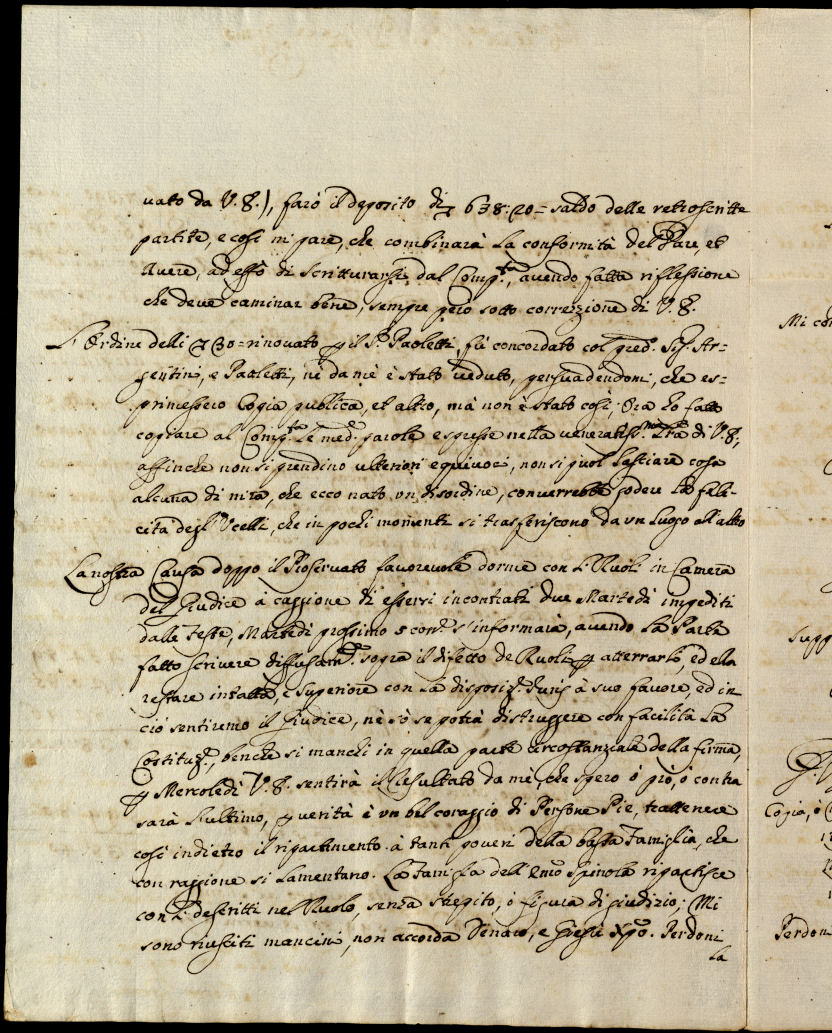 vato da V. S.), farò il deposito di 638:20 = saldo delle retroscritte
partite, e così mi pare, che combinarà la conformità del Dare, et
Avere, ad effo di scritturarsi dal Comp.ta, avendo fatta riflessione
che deve caminar bene, sempre però sotto correzzione di V. S.
L'Ordine delli 30 = rinovato il S.r Paoletti, fù concordato col pred.o Sig. Ar=
gentini, e Paoletti, nè da mè è stato veduto, persuadendomi, che es=
primessero Copia publica, et altro, mà non è stato così; Ora hò fatto
copiare al Comp.ta le med.e parole espresse nella veneratiss.ma Lra di V. S.,
affinche non si prendino ulteriori equivoci, non si puol lasciare cosa
alcuna di mira, che ecco nato un disordine, converrebbe godere la feli=
cità degl'Ucelli, che in pochi momenti si trasferiscono da un luogo all'altro
La nostra Causa doppo il Rioservato favorevole dorme con li Ruoli in Camera
del Giudice à caggione di essersi incontrati due Martedì impediti
dalle Feste, Martedì prossimo 5 corr.e s'informarà, avendo la Parte
fatto scrivere diffusam.te sopra il difetto de Ruoli atterrarlo, ed ella
restare intatta, e superiore con la disposiz.e Juris à suo favore, ed in
ciò sentiremo il Giudice, nè sò se potrà distruggere con facilità la
Costituz.e, benche si manchi in quella parte circostanziale della firma,
Mercoledì V. S. sentirà il Resultato da mè, che spero ò prò, ò contra
sarà l'ultimo, verità è un bel coraggio di Persone Pie, trattenere
così indietro il ripartimento à tanti poveri della bassa Famiglia, che
con raggione si lamentano. La Famiglia dell'Emo Spinola ripartisce
con li descritti nel Ruolo, senza strepito, ò figura di giudizio; Mi
sono riusciti mancini, non accorda Denaro, e Giesù Xpo. Perdoni
la
Mi con
supp
Copia, è
Perdon